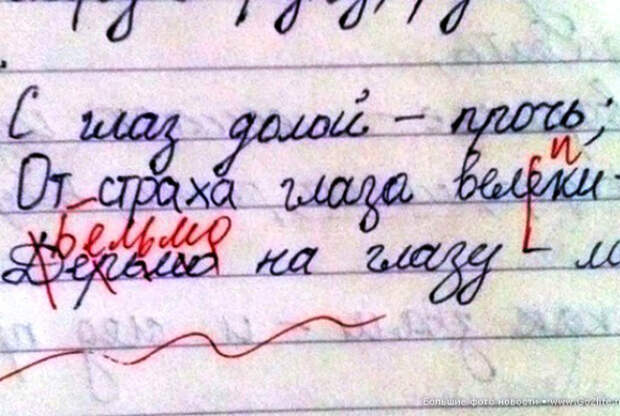 С глаз долой – прочь;
п
От страха глаза велеки
Бельмо
Дерьмо на глазу –
большие фото новости • www.